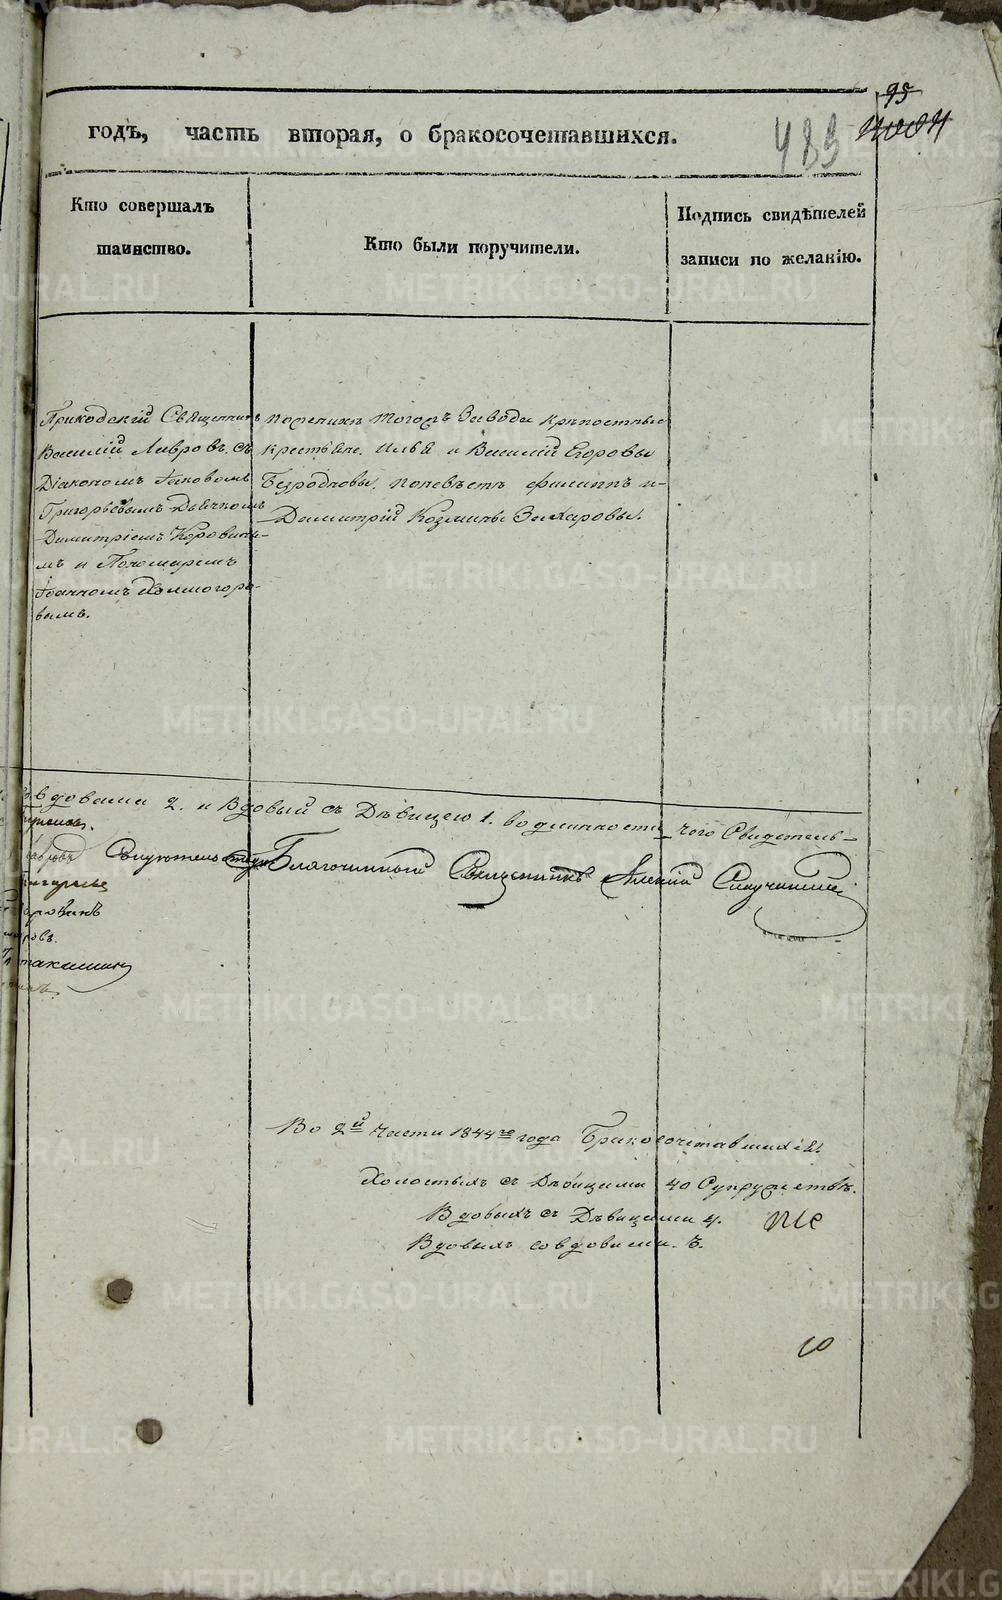 95
489
годъ, часть вторая, о бракосочетавшихся.
Кто совершалъ
таинство.
Кто были поручители.
Подпись свидѣтелей
записи по желанію.
Приходскій Священникъ
Василій Лавровъ, съ
Діакономъ Іаковомъ
Григорьевымъ Дьячкомъ
Димитріемъ Коровины-
мъ и Пономаремъ
Іоанномъ Холмогоро-
вымъ.
Поженихѣ тогожъ Завода крѣпостные
крестьяне, Илья и Василій Егоровы
Безродновы, Поневѣстѣ Филиппъ и
Димитрій Козмины Захаровы.
вдовами 2. и Вдовый съ Дѣвицею 1. во длинности чего Свидѣтель-
Благочинный Священникъ Алексій
Во 2й части 1844го года Бракосочетавшихся
Холостыхъ съ Дѣвицами 40 Супружествъ.
Вдовыхъ съ Дѣвицами 4.
Вдовыхъ совдовами.
METRIKI.GASO-URAL.RU